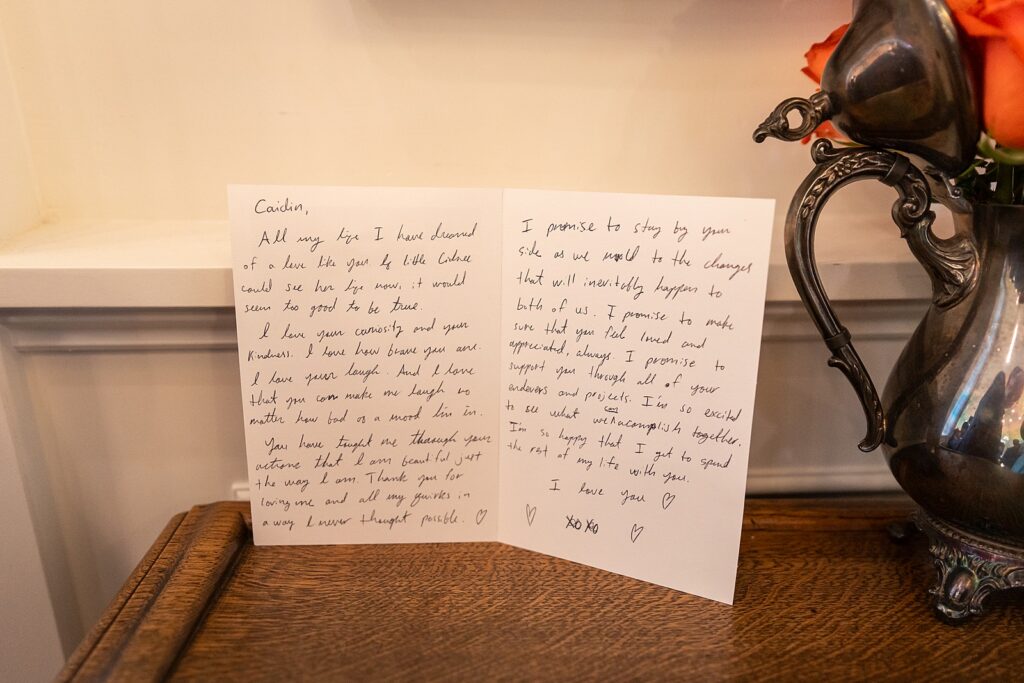 Caidin,
All my life I have dreamed
of a love like you. If little
could see her life now, it would
seem too good to be true.
I love your curiosity and your
kindness. I love how brave you are.
I love your laugh. And I love
that you can make me laugh no
matter how bad of a mood I'm in.
You have taught me through your
actions that I am beautiful just
the way I am. Thank you for
loving me and all my quirks in
a way I never thought possible. ♡
I promise to stay by your
side as we mold to the changes
that will inevitably happen to
both of us. I promise to make
sure that you feel loved and
appreciated, always. I promise to
support you through all of your
endevers and projects. I'm so excited
to see what we can acomplish together.
I'm so happy that I get to spend
the rest of my life with you.
I love you ♡
♡ XoXo ♡